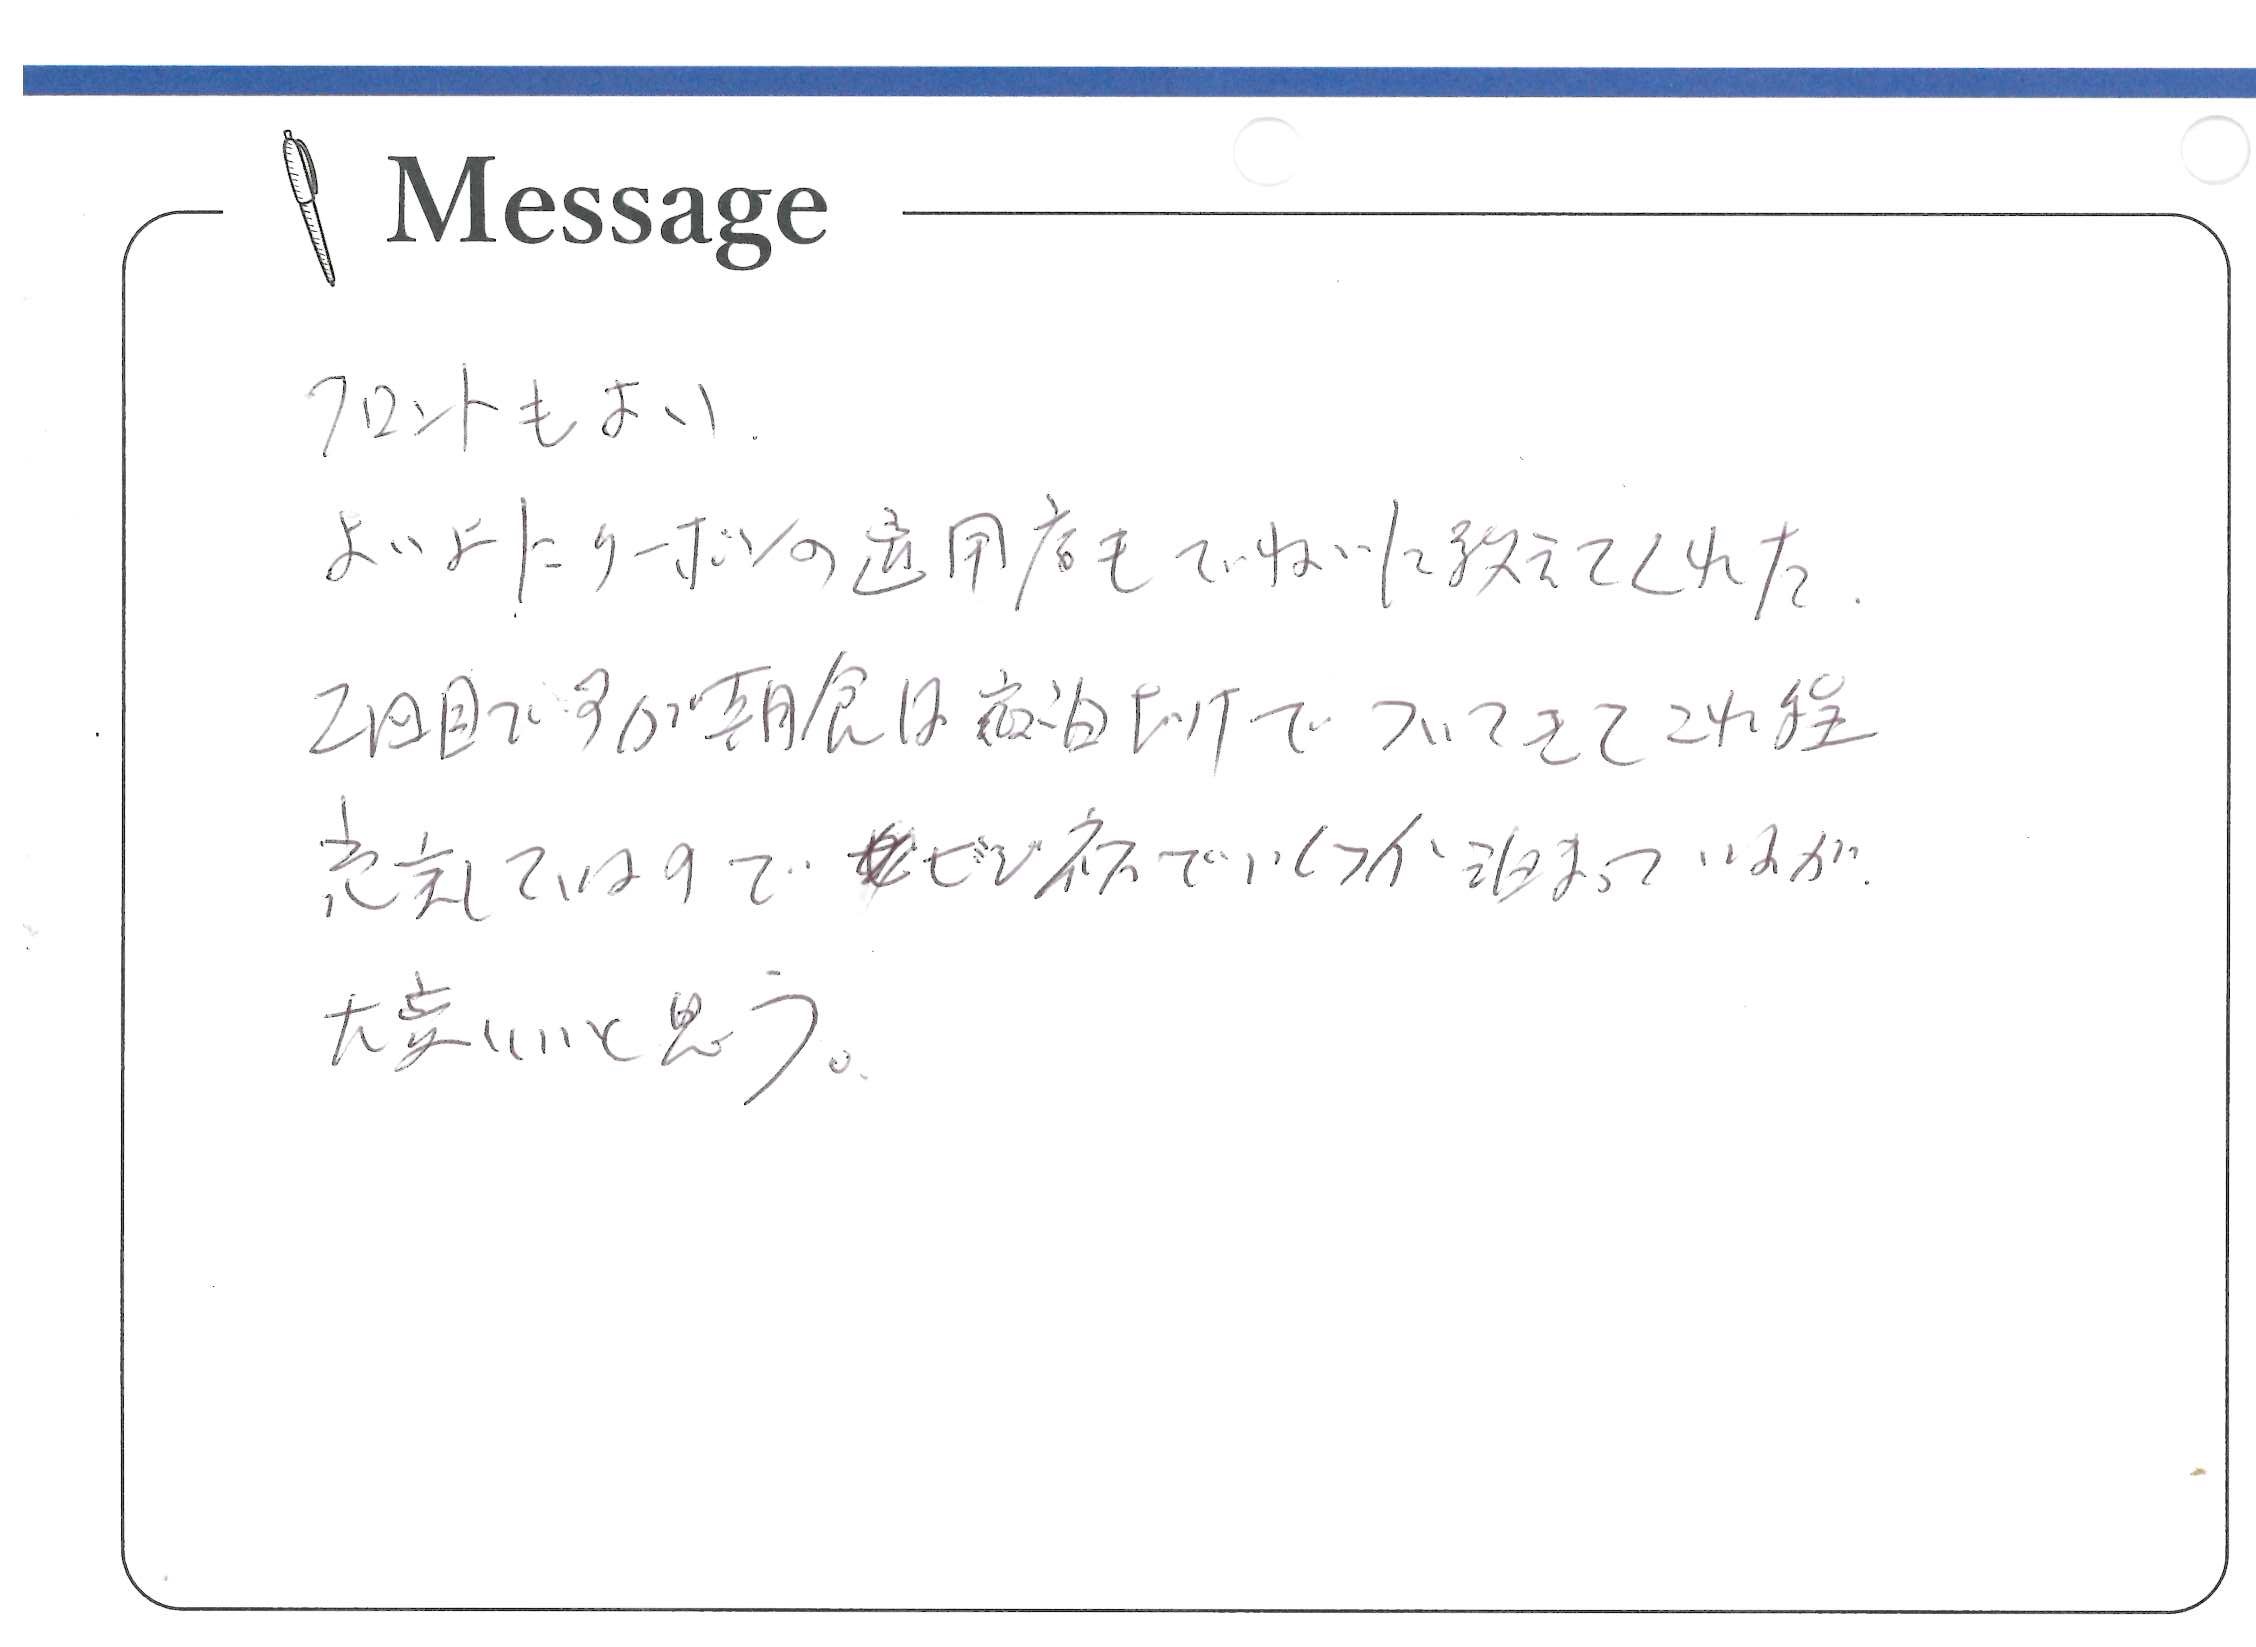 Message
フロントもよい.
クーポンの適用店もていねいに教えてくれた.
2回目ですが朝食は宿泊だけでついてきてこれ程
充実していますので ビジネスでいくつか泊まっていますが.
大変いいと思う。